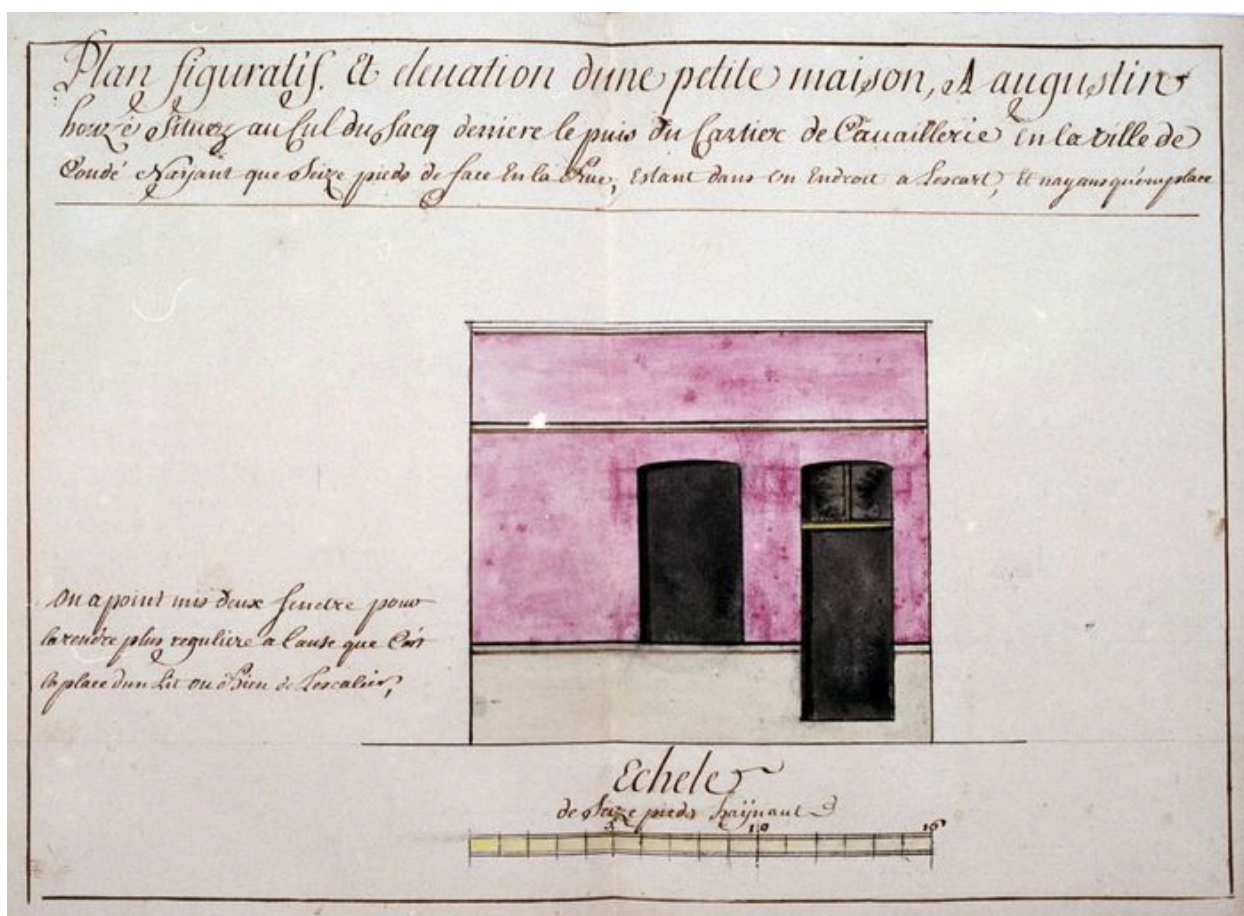 Plan figuratif. Et eleuation dune petite maison, A augustin
houzé Situez au Cul du Sacq derriere le puis du Cartier de Cauaillerie En la ville de
Condé Nayant que Seize pieds de face En la Rue, Estant dans un Endroit a Lescart, Et nayans qu'une place
On a point mis deux fenetre pour
la rendre plus reguliere a Cause que C'est
la place d'un Lit ou Bien de Lescalier,
Echele
de Seize pieds haÿnaut
5 10 16